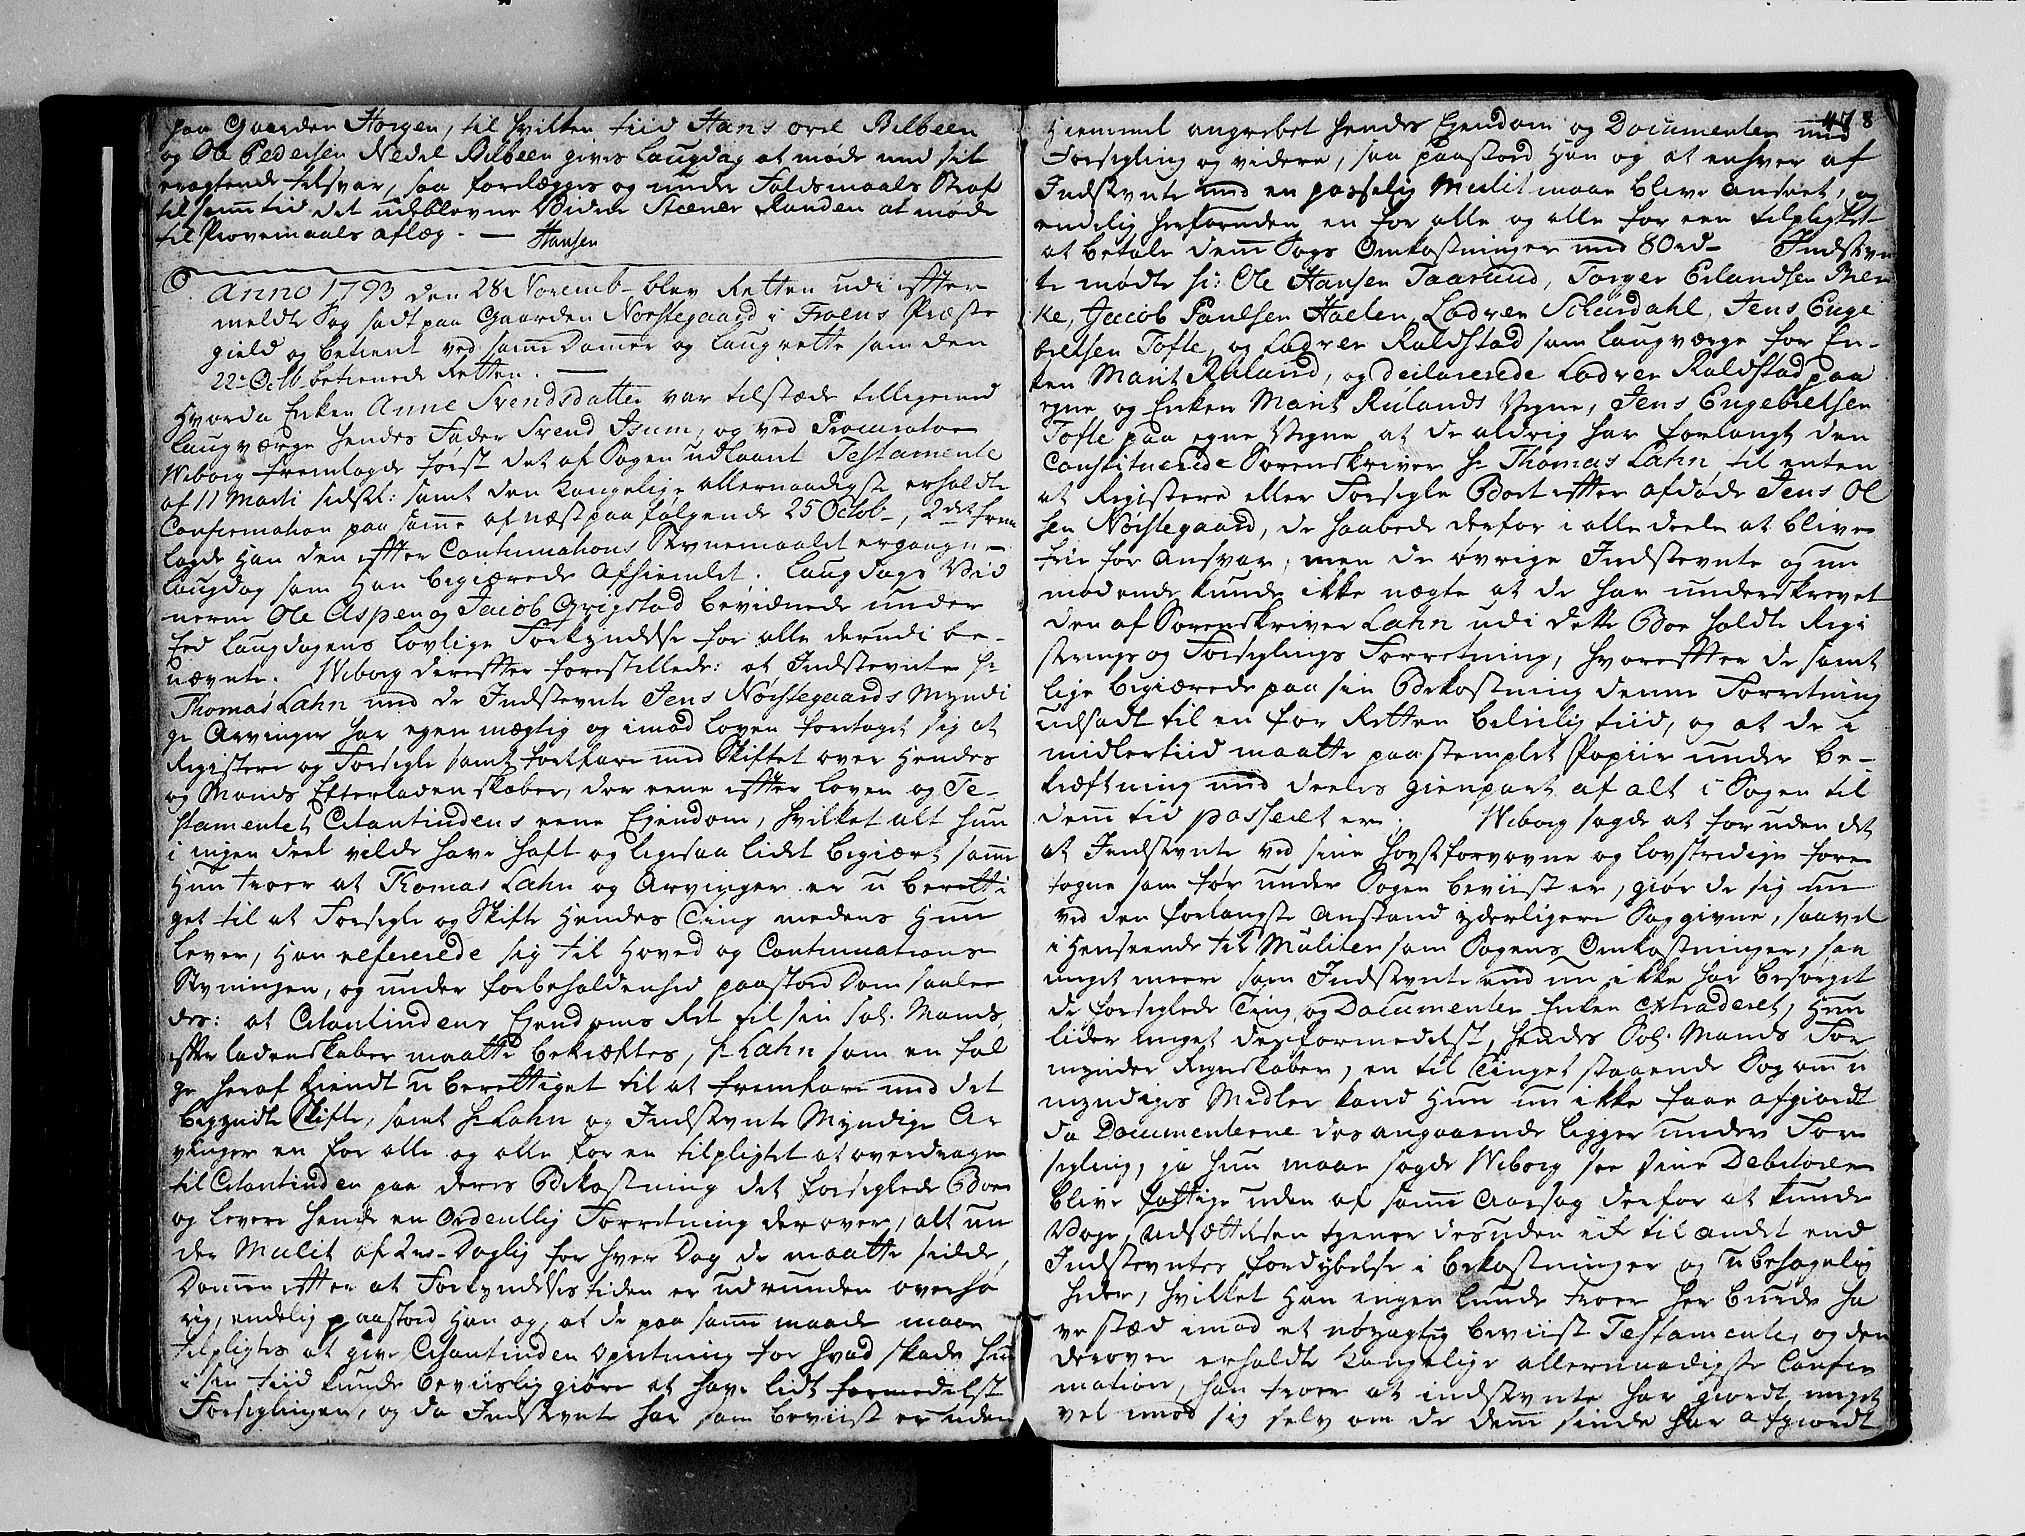 paa Gaarden Horgen, til hvilken tiid Hans øvre Bilbeen
og Ole Pedersen Nedre Bilbeen gives Laugdag at møde med sit
eragtende tilsvar, saa forelægges og under Faldsmaals Straf
til samme tid det udeblevne Vidne Steener Randen at møde
til Provemaals aflæg. — Hansen
Anno 1793 den 28 Novemb. blev Retten udi efter
meldte Sag sadt paa Gaarden Nørstegaard i Froens Præste
gield og betient ved samme Dommer og Laugrette som den
22de Octb. betienede Retten. —
Hvorda Enken Anne Svendsdatter var tilstæde tilligemed
Laugværge hendes Fader Svend Isum, og ved Procurator
Wiborg fremlagde først det af Sagen udlaant Testamente
af 11 Marti sidstl: samt den Kongelige allernaadigste erholdte
Confirmation paa samme af næstpaafølgende 25 Octob., 2det frem
lagde han den efter Continuations Stevnemaalet ergangne
Laugdag som han begiærede afhiemlet. Laugdags Vid
nerne Ole Aspen og Jacob Grigstad bevidnede under
Eed Laugdagens lovlige Forkyndelse for alle derudi be-
nævnte. Wiborg derefter forestillede: at Indstevnte Hr
Thomas Lahn med de Indstevnte Jens Nørstegaards Myndi
ge Arvinger har egenmægtig og imod Loven foretaget sig at
Registere og Forsegle samt fortfare med Skiftet over Hendes
og Mands Efterladenskaber, der eene efter Loven og Te-
stamentet Citantindens eene Ejendom, hvilket alt hun
i ingen deel velde have haft og ligesaa lidet begiært samme
Hun troer at Thomas Lahn og Arvinger er u beretti
get til at Forsegle og Skifte Hendes Ting medens Hun
lever, Han refererede sig til Hoved og Continuations
Stevningen, og under forbeholdenhed paastod Dom saale
des: at Citantindens Ejendoms Ret til sin Sal. Mands
efterladenskaber maatte bekræftes, Hr Lahn som en føl
ge heraf kiendt u berettiget til at fremfare med det
begyndte Skifte, samt Hr Lahn og Indstevnte Myndige Ar
vinger en for alle og alle for en tilpligtet at overdrage
til Citantinden paa deres Bekostning det forseglede Boe
og levere hende en Ordentlig Forretning derover, alt un
der Mulct af 2rd. Daglig for hver Dag de maatte sidde
Dommen efter at Forkyndelsestiden er udrunden overhø
rig, endelig paastod Han og, at de paa samme maade maae
tilpligtes at give Citantinden Opretning for hvad skade hun
i sin tiid kunde beviislig giøre at have lidt formedelst
Forseglingen, og da Indstevnte har som beviist er uden
478
Hiemmel angrebet hendes Ejendom og Documenter med
Forsegling og videre, saa paastod Han og at enhver af
Indstevnte med en passelig Mulct maae blive anseet, og
endelig herforuden en for alle og alle for een tilpligtet
at betale denne Sags Omkostninger med 80rd. Indstevn
te mødte hr: Ole Hansen Taarstud, Torger Erlandsen Bræn
ke, Jacob Paulsen Haelen, Lodver Schurdahl, Jens Enge
bretsen Tofte, og Lodver Raldstad som Laugværge for En-
ken Marit Ruland, og declarerede Lodver Raldstad paa
egne og Enken Marit Rulands Vegne, Jens Engebretsen
Tofte paa egne Vegne at de aldrig har forlangt den
Constituerede Sorenskriver Hr Thomas Lahn til enten
at Registere eller Forsegle Boet efter afdøde Jens Ol
sen Nørstegaard, de haabede derfor i alle deele at blive
frie for Ansvar, men de øvrige Indstevnte og nu
mødende kunde ikke nægte at de har underskrevet
den af Sorenskriver Lahn udi dette Boe holdte Regi
strerings og Forseglings Forretning, hvorefter de samt
lige begiærede paa sin Bekostning denne Forretning
udsadt til en for Retten beleilig tiid, og at de i
midlertiid maatte paa stemplet Papiir under be-
kræftning med deeles gienpart af alt i Sagen til
denne tid passeret er. Wiborg sagde at foruden det
at Indstevnte ved sine høystforvovne og lovstridige fore
tagne som før under Sagen beviist er, giør de sig nu
ved den forlangte Anstand yderligere Saggivne, saavel
i Henseende til Mulcter som Sagens Omkostninger, saa
meget meere som Indstevnte end nu ikke har besørget
de forseglede Ting og Documenter Enken extraderet, Hun
lider meget derformedelst, hendes Sal. Mands For
mynder Regnskaber, en til Tinget staaende Sag om u
myndiges Midler kand Hun nu ikke faae afgiordt
da Documenterne desangaaende ligger under For
segling, ja hun maae sagde Wiborg see sine Debitorer
blive fattige uden af samme Aarsag derfor at kunde
Vage, Udsættelsen tiener desuden ei til andet end
Indstevntes fordybelse i bekostninger og ubehagelig
heder, hvilket Han ingenlunde troer her burde ha
ve stæd imod et nøyagtig beviist Testamente, og den
derover erholdte Kongelige allernaadigste Confir
mation, han troer at indstevnte har giordt meget
vel imod sig selv om de denne sinde har afgiordt